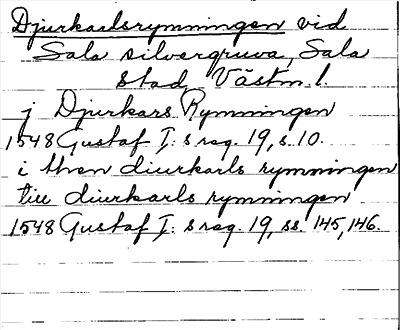 Djurkarlsrymningen vid
Sala silvergruva, Sala
stad, Västm. l.
j Djurkars Rymningen
1548 Gustaf I:s reg. 19, s. 10.
i then diurkarls rymningen
till diurkarls rymningen
1548 Gustaf I:s reg. 19, ss. 145, 146.